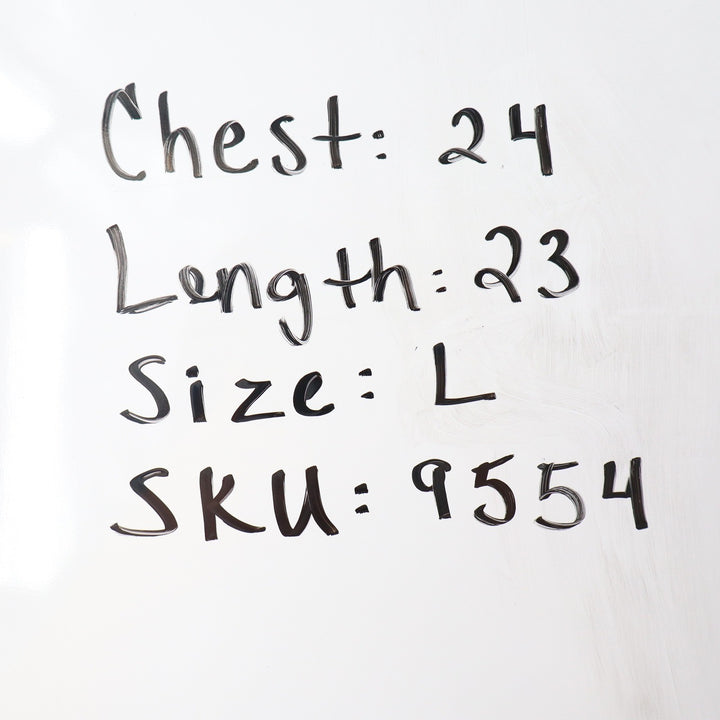 Chest: 24
Length: 23
Size: L
SKU: 9554